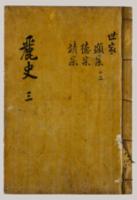 世家
顯宗
德宗
靖宗
麗史 三